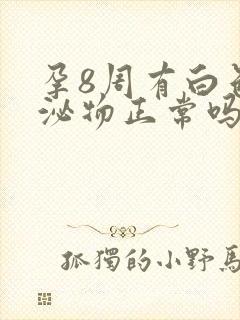 孕8周有白
泌物正常吗
孤獨的小野馬